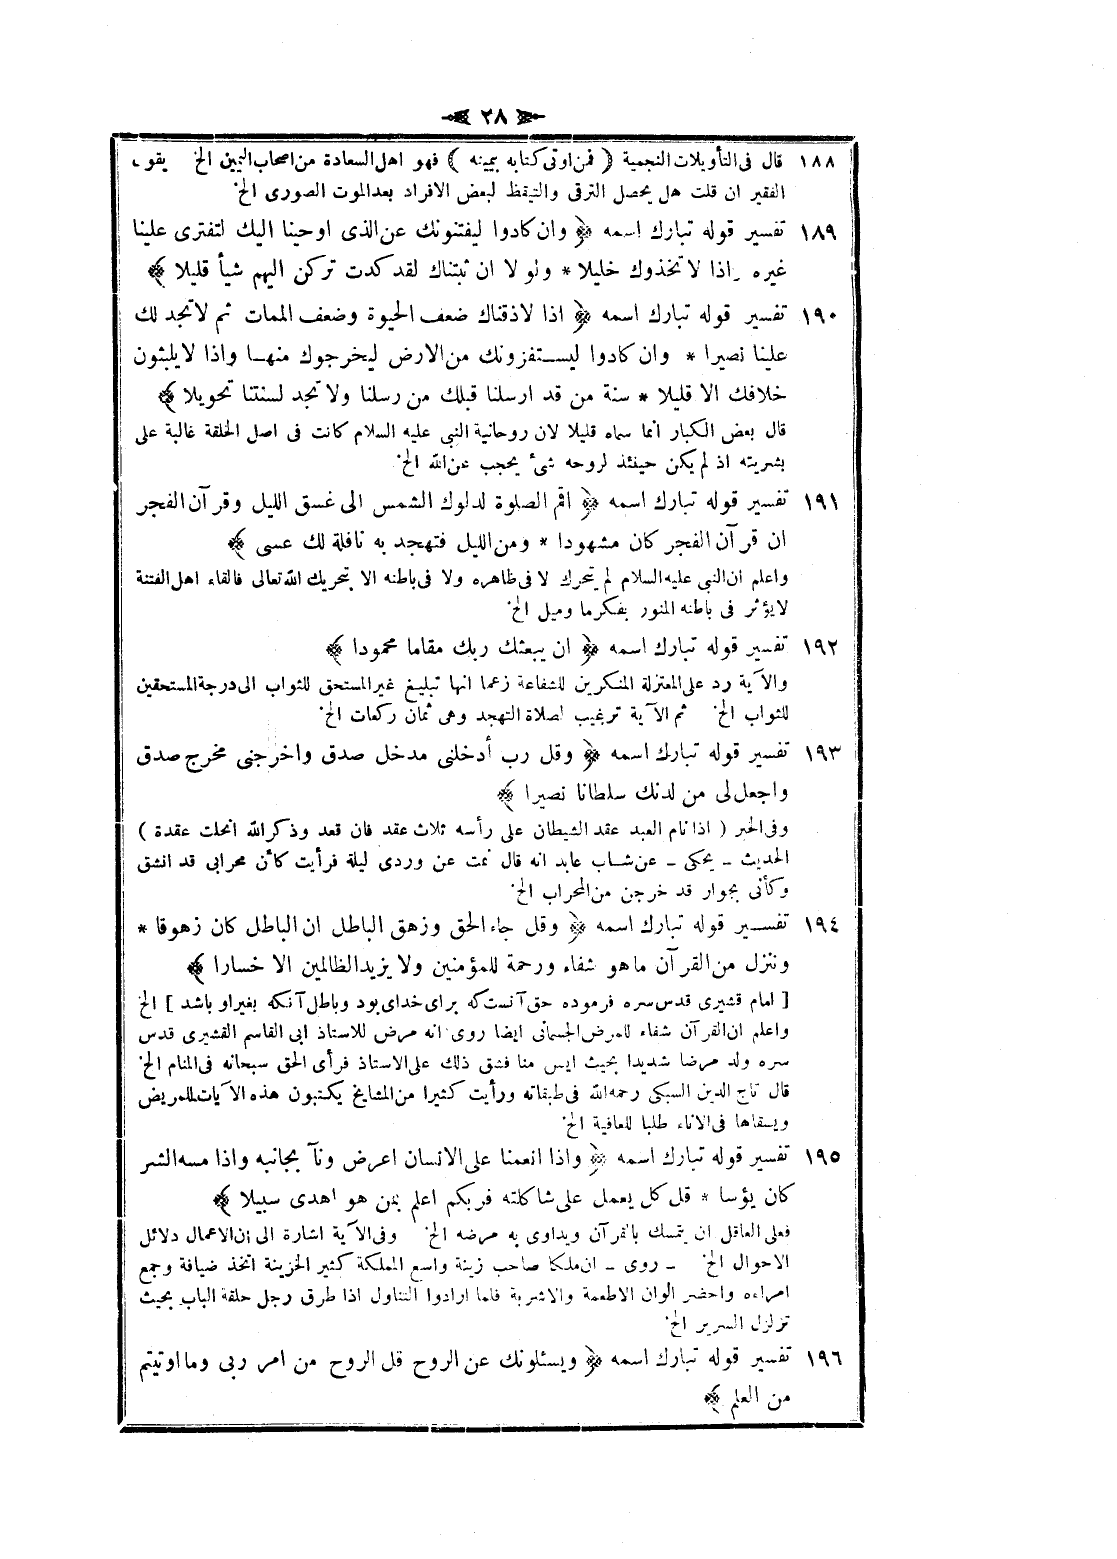 ٢٨
١٨٨ قال فى التأويلات النجمية ( فمن اوتى كتابه بيمينه ) فهو اهل السعادة من اصحاب اليمين الخ يقول
الفقير ان قلت هل يحصل الترقى والتيقظ لبعض الافراد بعد الموت الصورى الخ
١٨٩ تفسير قوله تبارك اسمه ﴿ وان كادوا ليفتنونك عن الذى اوحينا اليك لتفترى علينا
غيره واذا لاتخذوك خليلا * ولو لا ان ثبتناك لقد كدت تركن اليهم شيأ قليلا ﴾
١٩٠ تفسير قوله تبارك اسمه ﴿ اذا لاذقناك ضعف الحيوة وضعف الممات ثم لاتجد لك
علينا نصيرا * وان كادوا ليستفزونك من الارض ليخرجوك منها واذا لايلبثون
خلافك الا قليلا * سنة من قد ارسلنا قبلك من رسلنا ولا تجد لسنتنا تحويلا ﴾
قال بعض الكبار انما سماه قليلا لان روحانية النبى عليه السلام كانت فى اصل الخلقة غالبة على
بشريته اذ لم يكن حينئذ لروحه شئ يحجب عن الله الخ
١٩١ تفسير قوله تبارك اسمه ﴿ اقم الصلوة لدلوك الشمس الى غسق الليل وقرآن الفجر
ان قرآن الفجر كان مشهودا * ومن الليل فتهجد به نافلة لك عسى ﴾
واعلم ان النبى عليه السلام لم يتحرك لا فى ظاهره ولا فى باطنه الا بتحريك الله تعالى فالقاء اهل الفتنة
لايؤثر فى باطنه المنور بفكر ما وميل الخ
١٩٢ تفسير قوله تبارك اسمه ﴿ ان يبعثك ربك مقاما محمودا ﴾
والآية رد على المعتزلة المنكرين للشفاعة زعما انها تبليغ غير المستحق للثواب الى درجة المستحقين
للثواب الخ ثم الآية ترغيب لصلاة التهجد وهى ثمان ركعات الخ
١٩٣ تفسير قوله تبارك اسمه ﴿ وقل رب أدخلنى مدخل صدق واخرجنى مخرج صدق
واجعل لى من لدنك سلطانا نصيرا ﴾
وفى الخبر ( اذا نام العبد عقد الشيطان على رأسه ثلاث عقد فان قعد وذكر الله انحلت عقدة )
الحديث ـ يحكى ـ عن شاب عابد انه قال نمت عن وردى ليلة فرأيت كأن محرابى قد انشق
وكأنى بجوار قد خرجن من المحراب الخ
١٩٤ تفسير قوله تبارك اسمه ﴿ وقل جاء الحق وزهق الباطل ان الباطل كان زهوقا *
وننزل من القرآن ما هو شفاء ورحمة للمؤمنين ولا يزيد الظالمين الا خسارا ﴾
[ امام قشيرى قدس سره فرموده حق آنست كه براى خداى بود وباطل آنكه بغير او باشد ] الخ
واعلم ان القرآن شفاء للمرض الجسمانى ايضا روى انه مرض للاستاذ ابى القاسم القشيرى قدس
سره ولد مرضا شديدا بحيث ايس منا فشق ذلك على الاستاذ فرأى الحق سبحانه فى المنام الخ
قال تاج الدين السبكى رحمه الله فى طبقاته ورأيت كثيرا من المشايخ يكتبون هذه الآيات للمريض
ويسقاها فى الاناء طلبا للعافية الخ
١٩٥ تفسير قوله تبارك اسمه ﴿ واذا انعمنا على الانسان اعرض ونآ بجانبه واذا مسه الشر
كان يؤسا * قل كل يعمل على شاكلته فربكم اعلم بمن هو اهدى سبيلا ﴾
فعلى العاقل ان يتمسك بالقرآن ويداوى به مرضه الخ وفى الآية اشارة الى ان الاعمال دلائل
الاحوال الخ ـ روى ـ ان ملكا صاحب زينة واسع المملكة كثير الخزينة اتخذ ضيافة وجمع
امراءه واحضر الوان الاطعمة والاشربة فلما ارادوا التناول اذا طرق رجل حلقة الباب بحيث
تزلزل السرير الخ
١٩٦ تفسير قوله تبارك اسمه ﴿ ويسئلونك عن الروح قل الروح من امر ربى وما اوتيتم
من العلم ﴾